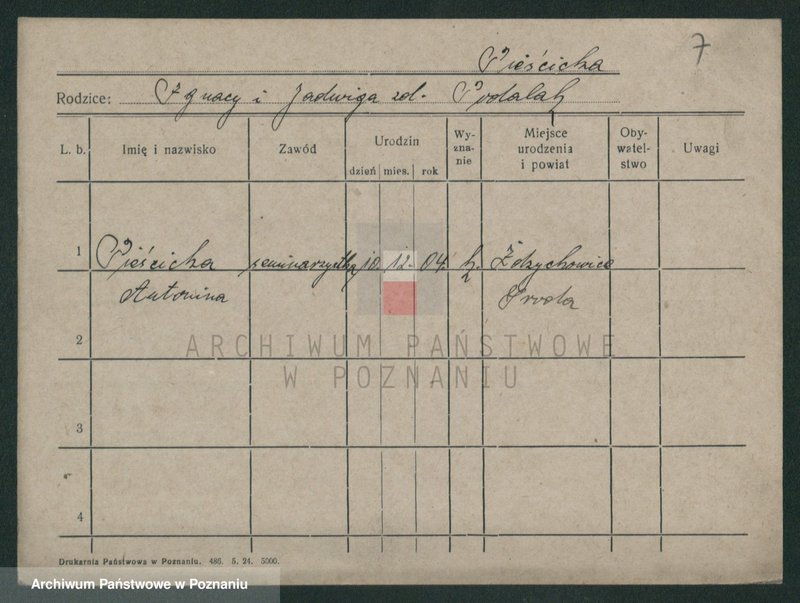 7
Pieścicka
Rodzice: Ignacy i Jadwiga zd.
L. b. Imię i nazwisko Zawód Urodzin dzień mies. rok Wy-zna-nie Miejsce urodzenia i powiat Oby-watel-stwo Uwagi
1 Pieścicka seminarzystka 10. 12. 04. k.
Antonina Środa
2
ARCHIWUM PAŃSTWOWE
W POZNANIU
3
4
Drukarnia Państwowa w Poznaniu. 486. 5. 24. 5000.
Archiwum Państwowe w Poznaniu